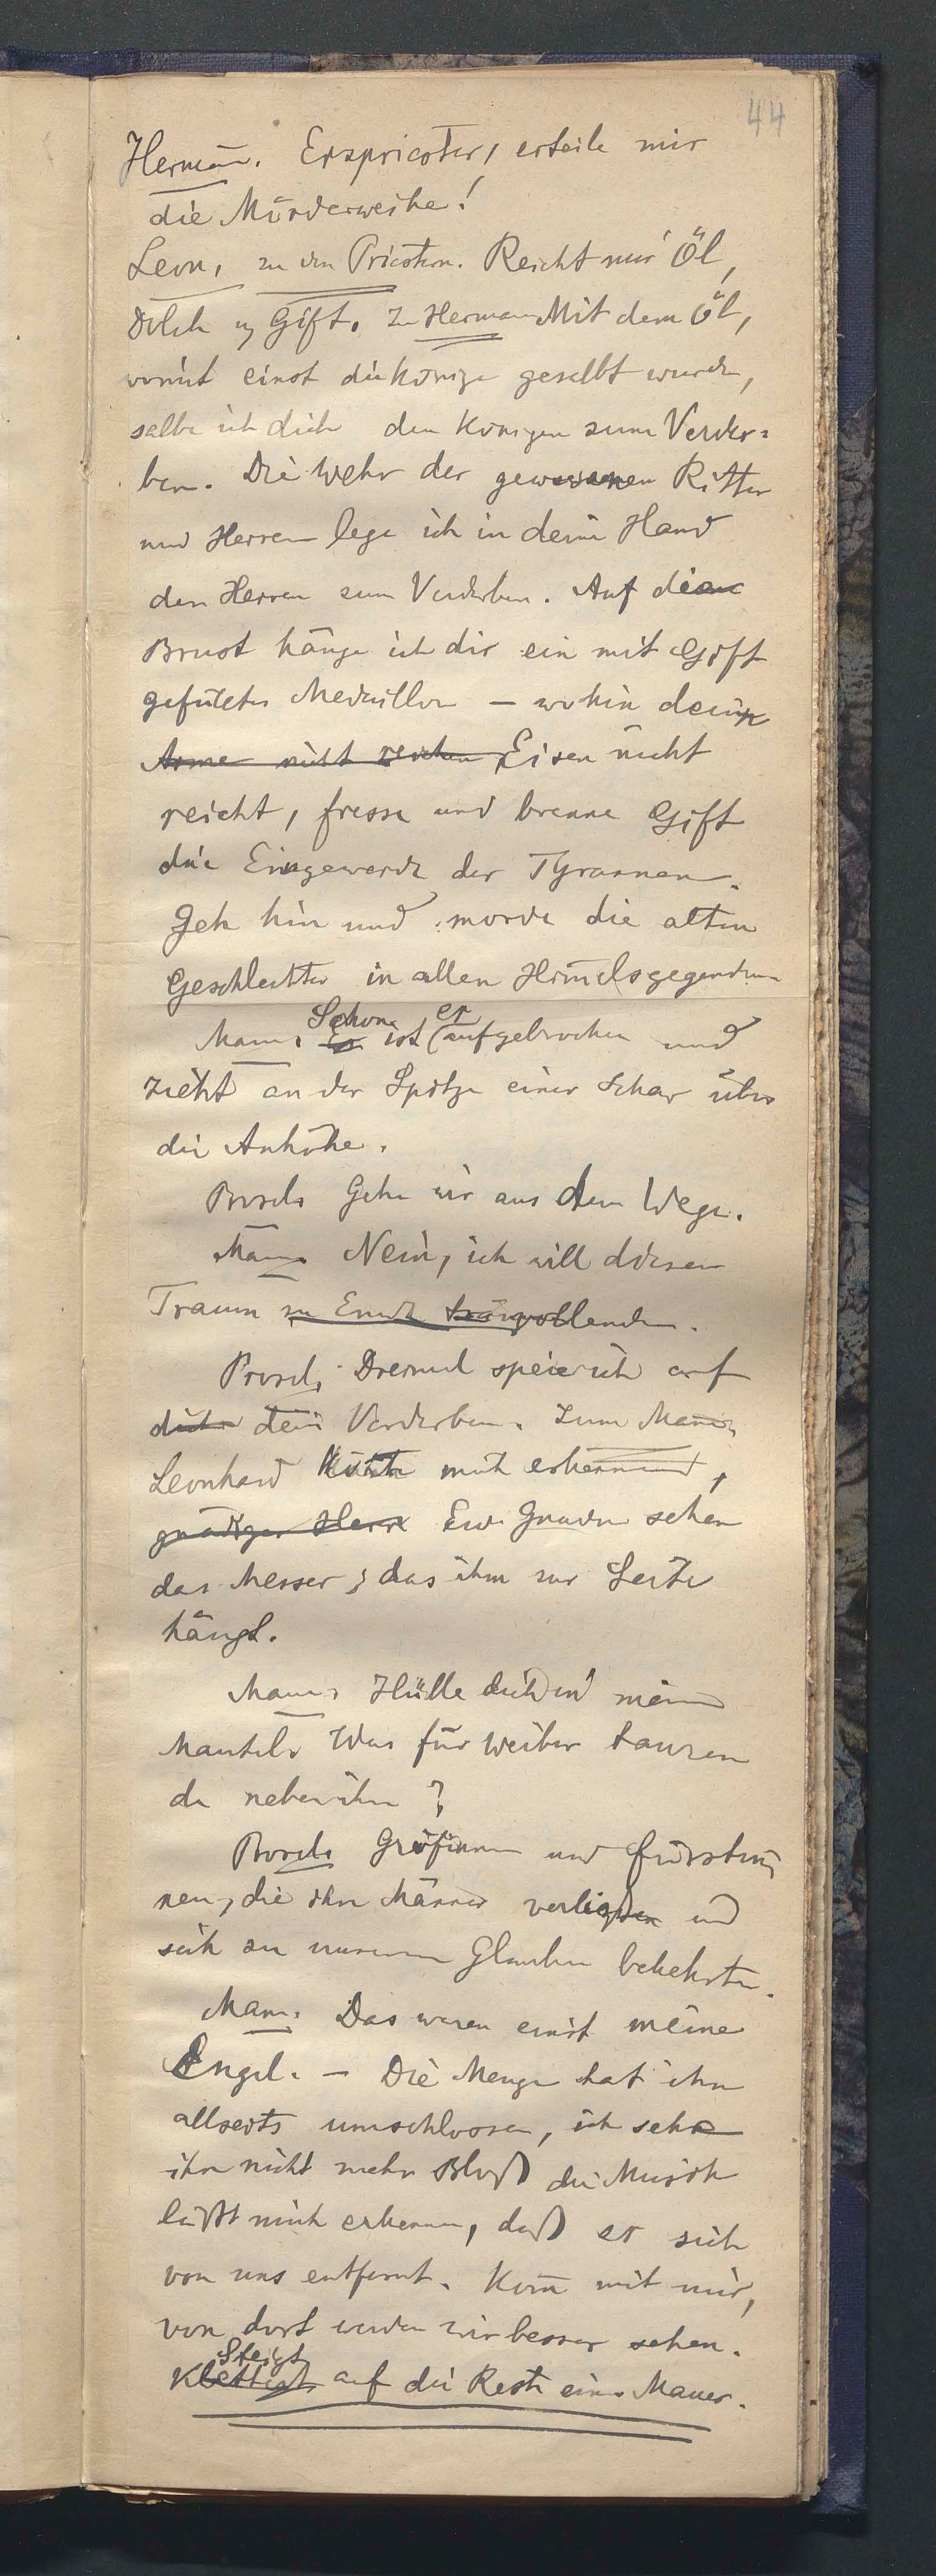 44
Herman̄. Erzpriester, erteile mir
die Mörderweihe!
Leon, zu den Priestern. Reicht mir Öl,
Dolch u Gift. Zu Herman Mit dem Öl,
womit einst die Könige gesalbt wurden,
salbe ich dich den Königen zum Verder=
ben. Die Wehr der gewesenen Ritter
und Herren lege ich in deine Hand
den Herren zum Verderben. Auf deine
Brust hänge ich dir ein mit Gift
gefülltes Medaillon – wohin dein
Arme nicht reichen Eisen nicht
reicht, fresse und brenne Gift
die Eingeweide der Tyrannen.
Geh hin und morde die alten
Geschlechter in allen Him̄elsgegenden
Schon er
Man̄. Er ist aufgebrochen und
zieht an der Spitze einer Schar über
die Anhöhe.
Gehn wir aus dem Wege.
Man̄. Nein, ich will diesen
Traum zu Ende vollenden.
Dreimal speie ich auf
dich dein Verderben. Zum Man̄,
Leonhard könnte mich erkennen,
gnädiger Herr Euer Gnaden sehen
das Messer, das ihm zur Seite
hängt.
Man̄. Hülle dich in meinen
Mantel. Was für Weiber tanzen
da neben ihm?
Gräfinnen und Fürstin
nen, die ihre Männer verließen und
sich zu unserem Glauben bekehrten.
Man̄. Das waren einst meine
Engel. – Die Menge hat ihn
allseits umschlossen, ich sehe
ihn nicht mehr Bloß die Musik
läßt mich erkennen, daß er sich
von uns entfernt. Kom̄ mit mir,
von dort werden wir besser sehen.
Steigt
Klettert auf die Reste einer Mauer.